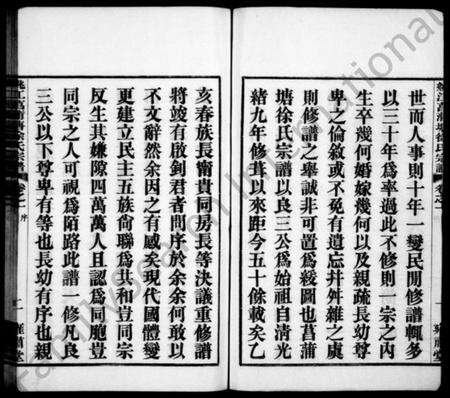 世而人事則十年一變民間修譜輒多
以三十年爲率過此不修則一宗之內
生卒幾何婚嫁幾何以及親疏長幼尊
卑之倫敘或不免有遺忘并舛雜之虞
則修譜之舉誠非可置爲緩圖也菖蒲
塘徐氏宗譜以良三公爲始祖自淸光
緒九年修葺以來距今五十餘載矣乙
亥春族長甯貴同房長等決議重修譜
將竣有啟釗君者問序於余余何敢以
不文辭然余因之有感矣現代國體變
更建立民主五族尙聯爲共和豈同宗
反生其嫌隙四萬萬人且認爲同胞豈
同宗之人可視爲陌路此譜一修允良
三公以下尊卑有等也長幼有序也親